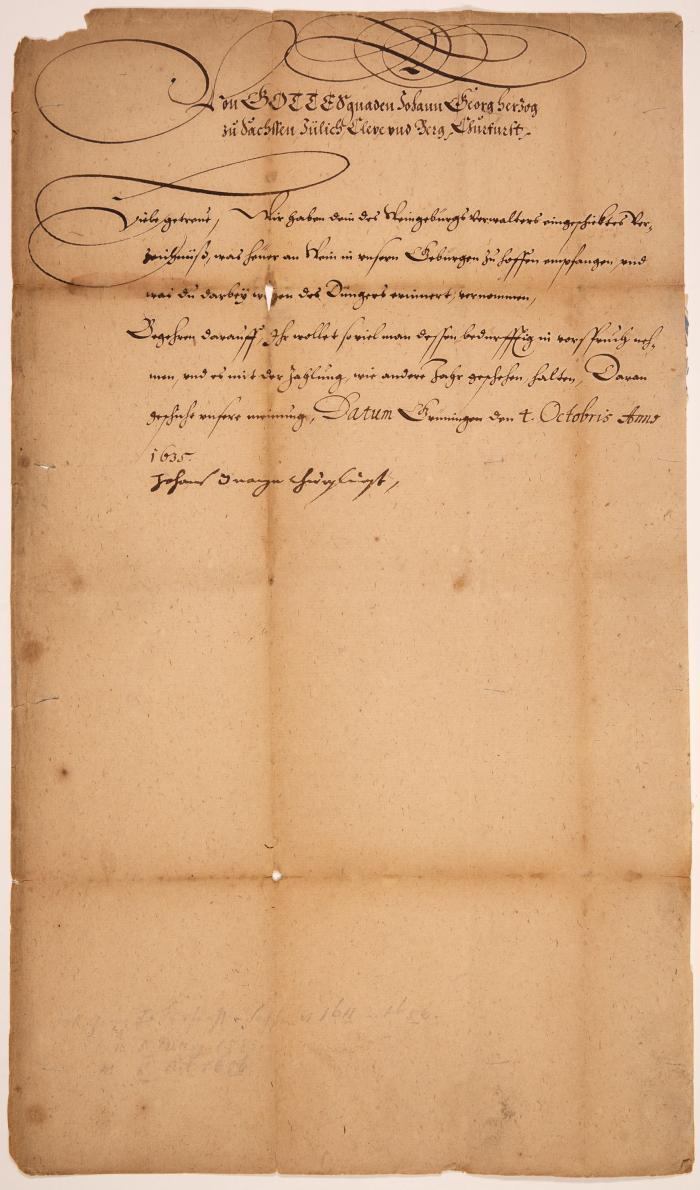 Von GOTTES gnaden Johann Georg herzog
zu Sachssen Jülich Cleve vnd Berg, Churfürst,
Liebe getreue, Wir haben dein des Weingebürgs Verwalters eingeschicktes Ver-
zeichnüß, was heuer an Wein in vnsern Geburgen zu hoffen empfangen, vnd
was du darbey wegen des Düngers erinnert, vernommen,
Begehren darauff, Ihr wollet so viel man dessen bedürfftig in vorspruch neh-
men, vnd es mit der Zahlung, wie andere Jahr geschehen, halten, Daran
geschicht vnsere meinung, Datum den 4. Octobris Anno
1635.
Johans Georg Churfürst,